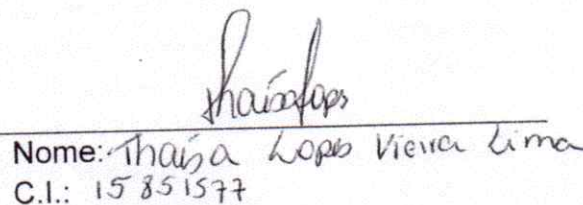 Thaísa Lopes
Nome: Thaísa Lopes Vieira Lima
C.I.: 15851577